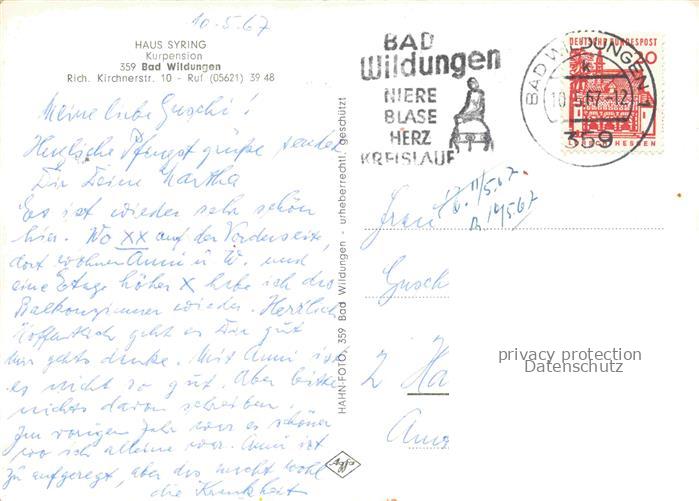 10.5.67
HAUS SYRING
Kurpension
359 Bad Wildungen
Rich. Kirchnerstr. 10 - Ruf (05621) 39 48
Meine liebe Guschi!
Herzliche Pfingstgrüße sendet
Dir Deine Martha
Es ist wieder sehr schön
hier. Wo XX auf der Vorderseite,
dort wohnen Anni u W. und
eine Etage höher X habe ich das
Balkonzimmer wieder. Herzlich
Hoffentlich geht es Dir gut
mir gehts danke. Mit Anni ist
es nicht so gut. Aber bitte
nichts davon schreiben.
Im vorigen Jahr war es schöner
wo ich alleine war. Anni ist
zu aufgeregt, aber das macht wohl
die Krankheit
HAHN-FOTO, 359 Bad Wildungen - urheberrechtl. geschützt
Agfa
BAD
Wildungen
NIERE
BLASE
HERZ
KREISLAUF
BAD WILDUNGEN 1
10.5.67-12
359
DEUTSCHE BUNDESPOST
20
LORSCH/HESSEN
11/5.67
14/5.67
Frau
Gusch
2 Ha
privacy protection
Datenschutz